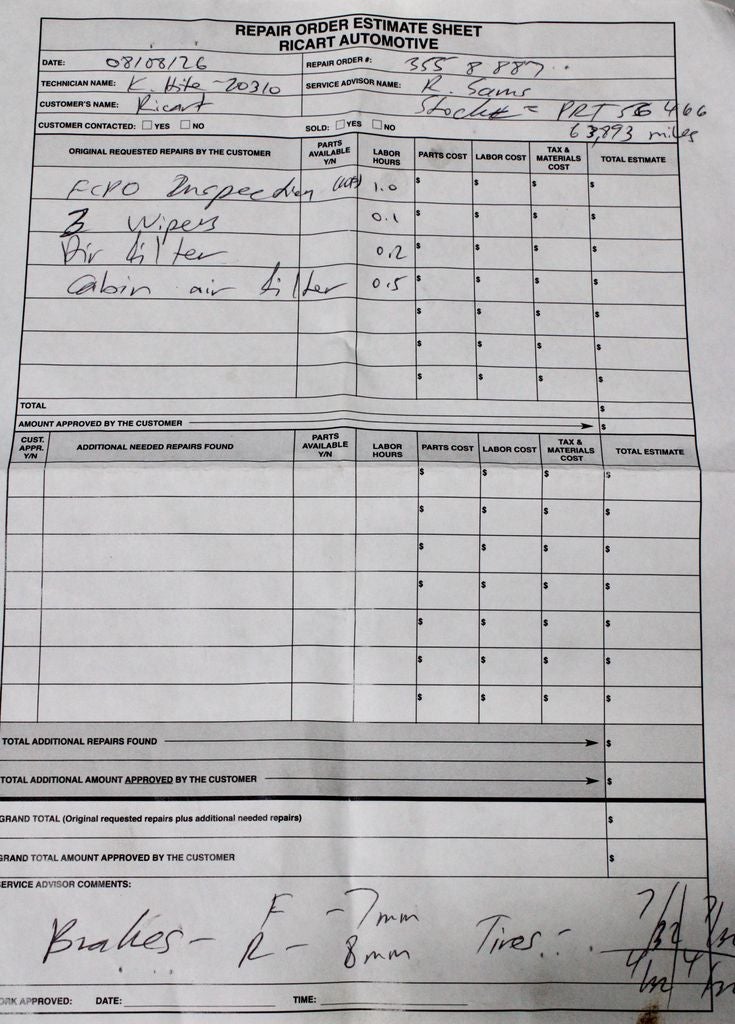 REPAIR ORDER ESTIMATE SHEET
RICART AUTOMOTIVE
DATE: 08/08/26 REPAIR ORDER #: 355 8 887
TECHNICIAN NAME: K. Hite - 20310 SERVICE ADVISOR NAME: R. Sams
CUSTOMER'S NAME: Ricart Stock# = PRT 56466
CUSTOMER CONTACTED: YES NO SOLD: YES NO 63,893 miles
ORIGINAL REQUESTED REPAIRS BY THE CUSTOMER PARTS AVAILABLE Y/N LABOR HOURS PARTS COST LABOR COST TAX & MATERIALS COST TOTAL ESTIMATE
FCPO Inspection 1.0 $ $ $ $
3 Wipers 0.1 $ $ $ $
Air filter 0.2 $ $ $ $
Cabin air filter 0.5 $ $ $ $
$ $ $ $
$ $ $ $
$ $ $ $
TOTAL $
AMOUNT APPROVED BY THE CUSTOMER $
CUST. APPR. Y/N ADDITIONAL NEEDED REPAIRS FOUND PARTS AVAILABLE Y/N LABOR HOURS PARTS COST LABOR COST TAX & MATERIALS COST TOTAL ESTIMATE
$ $ $ $
$ $ $ $
$ $ $ $
$ $ $ $
$ $ $ $
$ $ $ $
$ $ $ $
TOTAL ADDITIONAL REPAIRS FOUND $
TOTAL ADDITIONAL AMOUNT APPROVED BY THE CUSTOMER $
GRAND TOTAL (Original requested repairs plus additional needed repairs) $
GRAND TOTAL AMOUNT APPROVED BY THE CUSTOMER $
SERVICE ADVISOR COMMENTS:
Brakes - F - 7mm Tires: 7/32 7/32
R - 8mm 4/32 4/32
WORK APPROVED: DATE: TIME: